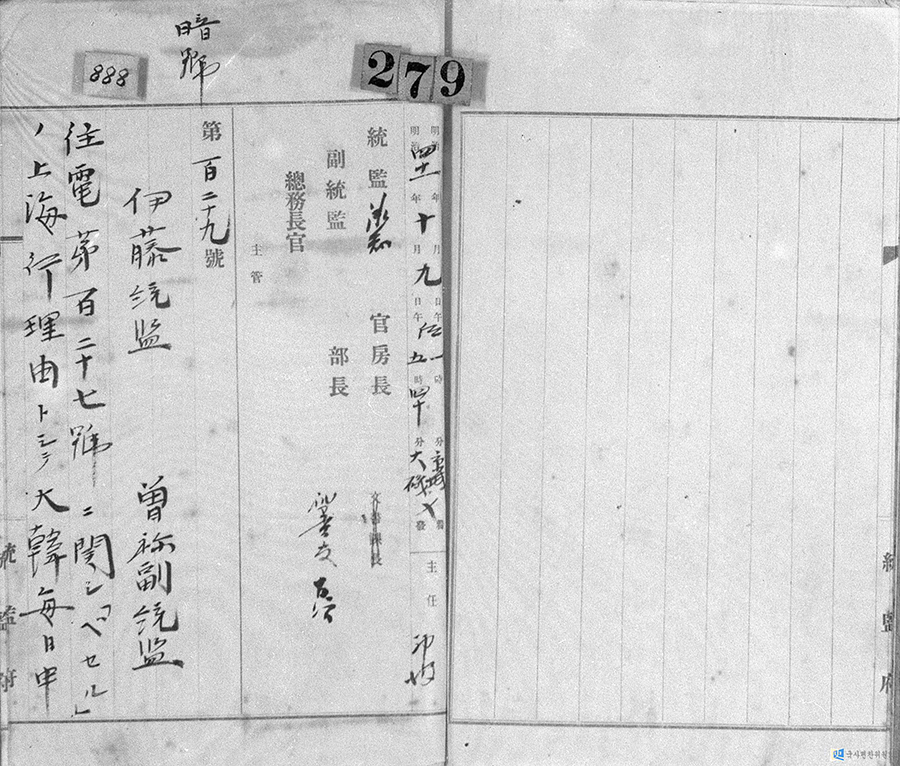 暗號
888
279
明治 年 月 日午 時 分 着
明治四十一年十月九日午后五時四十分大磯發
主任
統監
官房長
文書課長
副統監
部長
總務長官
主管
第百二十九號
伊藤統監 曾祢副統監
往電第百二十七號ニ関シ「ベセル」
ノ上海行理由トシテ大韓毎日申
統監府
統監府
국사편찬위원회